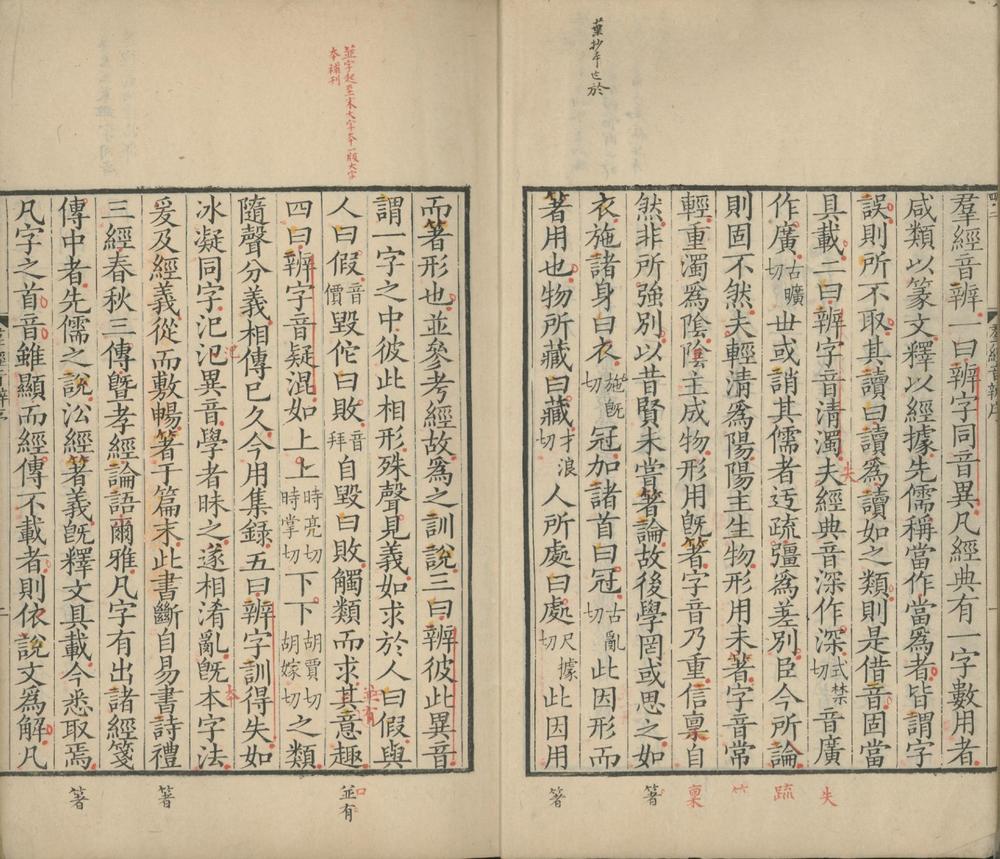 葉抄本也於
羣經音辨一曰辨字同音異凡經典有一字數用者
咸類以篆文釋以經據先儒稱當作當爲者皆謂字
誤則所不取其讀曰讀爲讀如之類則是借音固當
具載二曰辨字音清濁夫經典音深作深式禁切音廣
作廣古曠切丗或誚其儒者迃疏彊爲差別臣今所論
則固不然夫輕清爲陽陽主生物形用未著字音常
輕重濁爲陰陰主成物形用旣著字音乃重信稟自
然非所強別以昔賢未嘗著論故後學罔或思之如
衣施諸身曰衣施旣切冠加諸首曰冠古亂切此因形而
著用也物所藏曰藏才浪切人所處曰處尺據切此因用
失
失
疏
稟
著
著
並字起至末大字本一版大字
本補刊
而著形也並參考經故爲之訓說三曰辨彼此異音
謂一字之中彼此相形殊聲見義如求於人曰假與
人曰假音價毀佗曰敗音拜自毀曰敗觸類而求其意趣
四曰辨字音疑混如上上時亮切時掌切下下胡賈切胡嫁切之類
隨聲分義相傳已久今用集録五曰辨字訓得失如
冰凝同字汜汜異音學者昧之遂相淆亂旣本字法
爰及經義從而敷暢著于篇末此書斷自易書詩禮
三經春秋三傳曁孝經論語爾雅凡字有出諸經箋
傳中者先儒之說㳂經著義旣釋文具載今悉取焉
凡字之首音雖顯而經傳不載者則依說文爲解凡
並有
並有
本
著
著